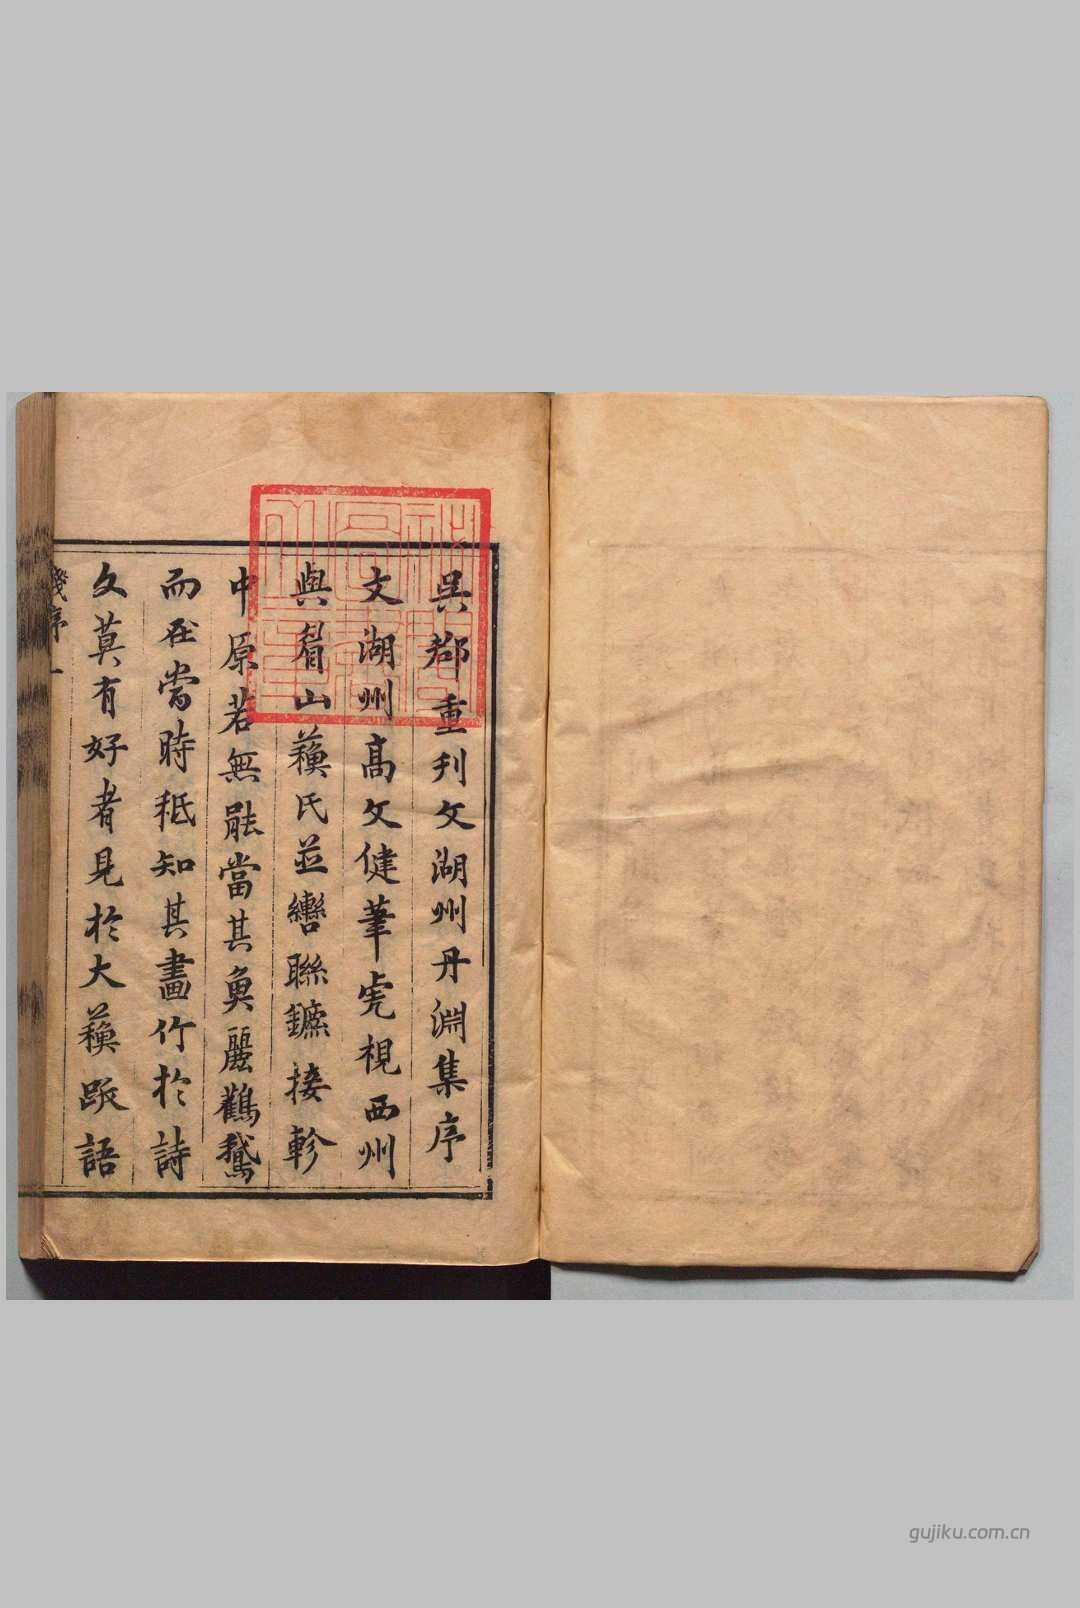 吳郡重刋文湖州丹淵集序
文湖州高文健筆虎視西州
與眉山蘓氏並轡聯鑣接軫
中原若無能當其魚麗鸛鵝
而在當時秪知其畫竹於詩
文莫有好者見於大蘓跋語
序一
gujiku.com.cn